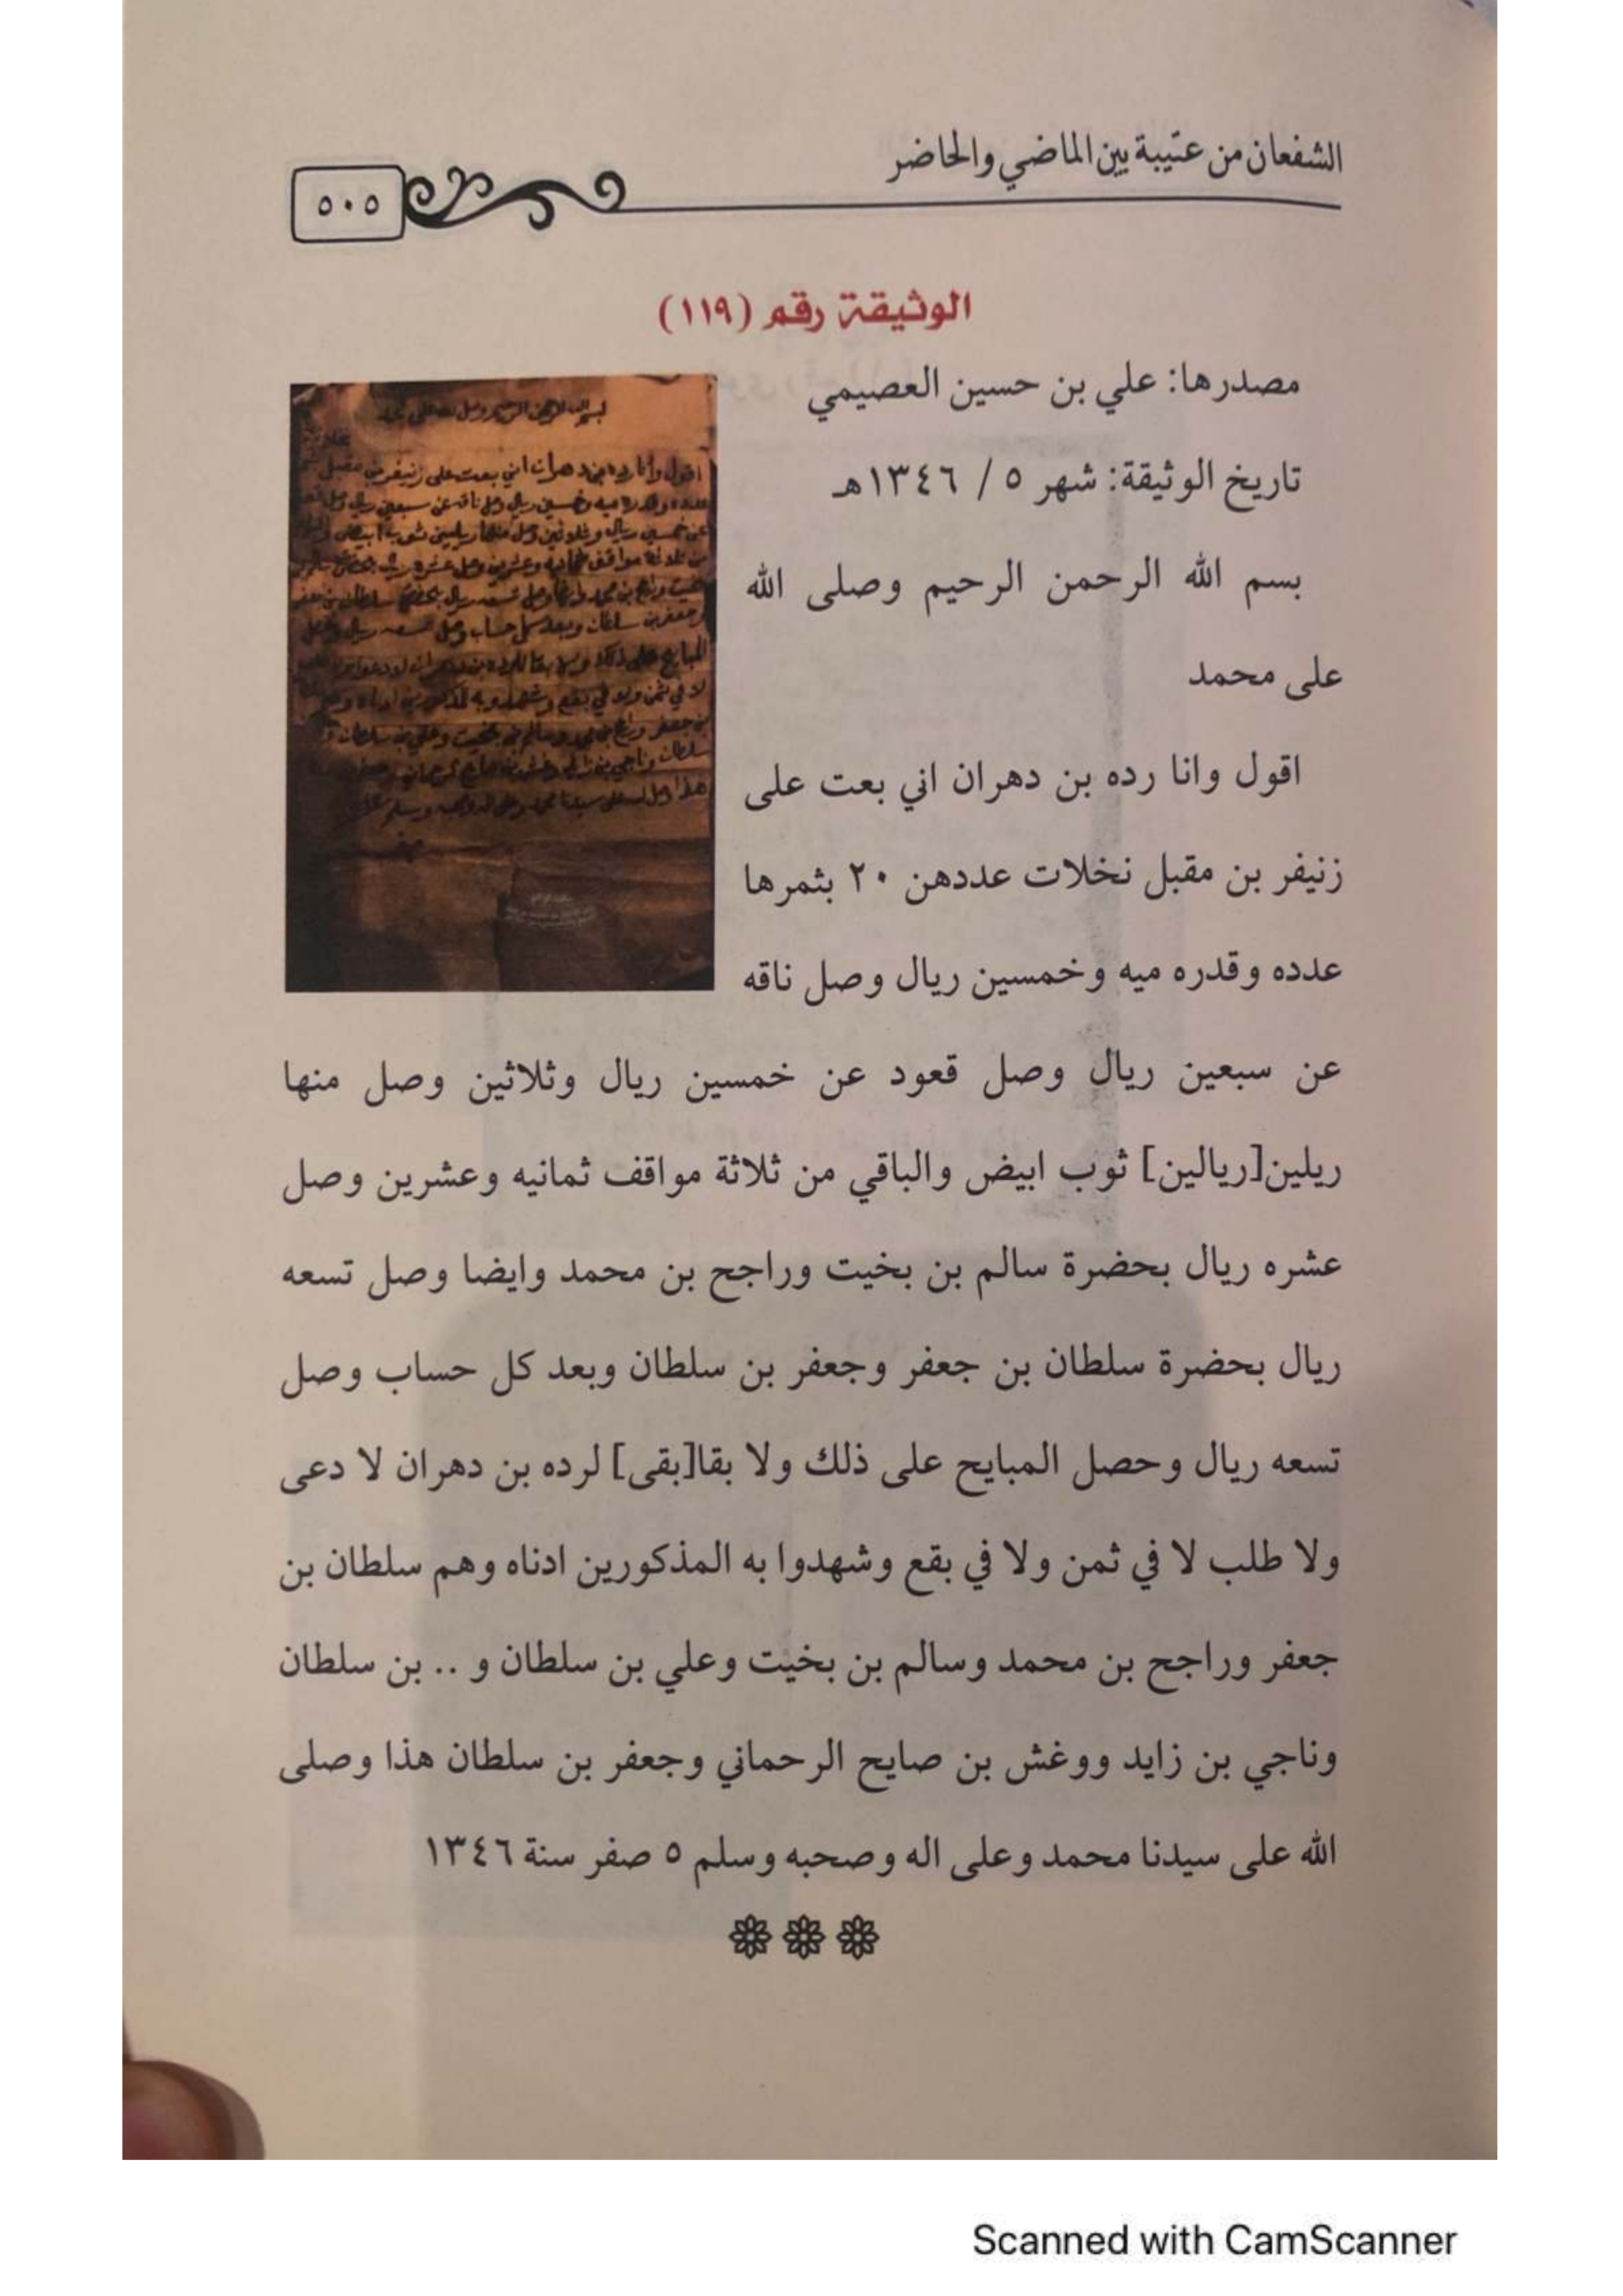 الشفعان من عتيبة بين الماضي والحاضر
٥٠٥
الوثيقة رقم (١١٩)
مصدرها: علي بن حسين العصيمي
تاريخ الوثيقة: شهر ٥ / ١٣٤٦هـ
بسم الله الرحمن الرحيم وصلى الله
على محمد
اقول وانا رده بن دهران اني بعت على
زنيفر بن مقبل نخلات عددهن ٢٠ بثمرها
عدده وقدره ميه وخمسين ريال وصل ناقه
عن سبعين ريال وصل قعود عن خمسين ريال وثلاثين وصل منها
ريلين[ريالين] ثوب ابيض والباقي من ثلاثة مواقف ثمانيه وعشرين وصل
عشره ريال بحضرة سالم بن بخيت وراجح بن محمد وايضا وصل تسعه
ريال بحضرة سلطان بن جعفر وجعفر بن سلطان وبعد كل حساب وصل
تسعه ريال وحصل المبايح على ذلك ولا بقا[بقى] لرده بن دهران لا دعى
ولا طلب لا في ثمن ولا في بقع وشهدوا به المذكورين ادناه وهم سلطان بن
جعفر وراجح بن محمد وسالم بن بخيت وعلي بن سلطان و .. بن سلطان
وناجي بن زايد ووغش بن صايح الرحماني وجعفر بن سلطان هذا وصلى
الله على سيدنا محمد وعلى اله وصحبه وسلم ٥ صفر سنة ١٣٤٦
Scanned with CamScanner